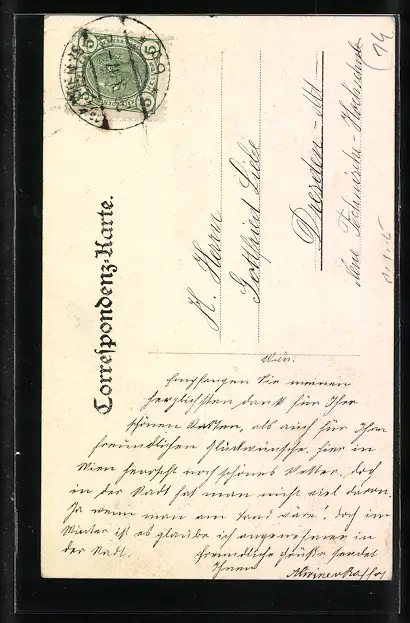 Correspondenz-Karte.
H. Herrn
Gottfried Liebe
Dresden-Alt
Neue Technische Hochschule
14
Wien.
Empfangen Sie meinen
herzlichsten Dank für Ihre
schönen Karten, als auch für Ihre
freundlichen Glückwünsche, hier in
Wien herrscht noch schönes Wetter, doch
in der Stadt hat man nicht viel davon.
Ja wenn man am Land wäre! doch im
Winter ist es glaube ich angenehmer in
der Stadt.
freundliche Grüße sendet
Ihnen